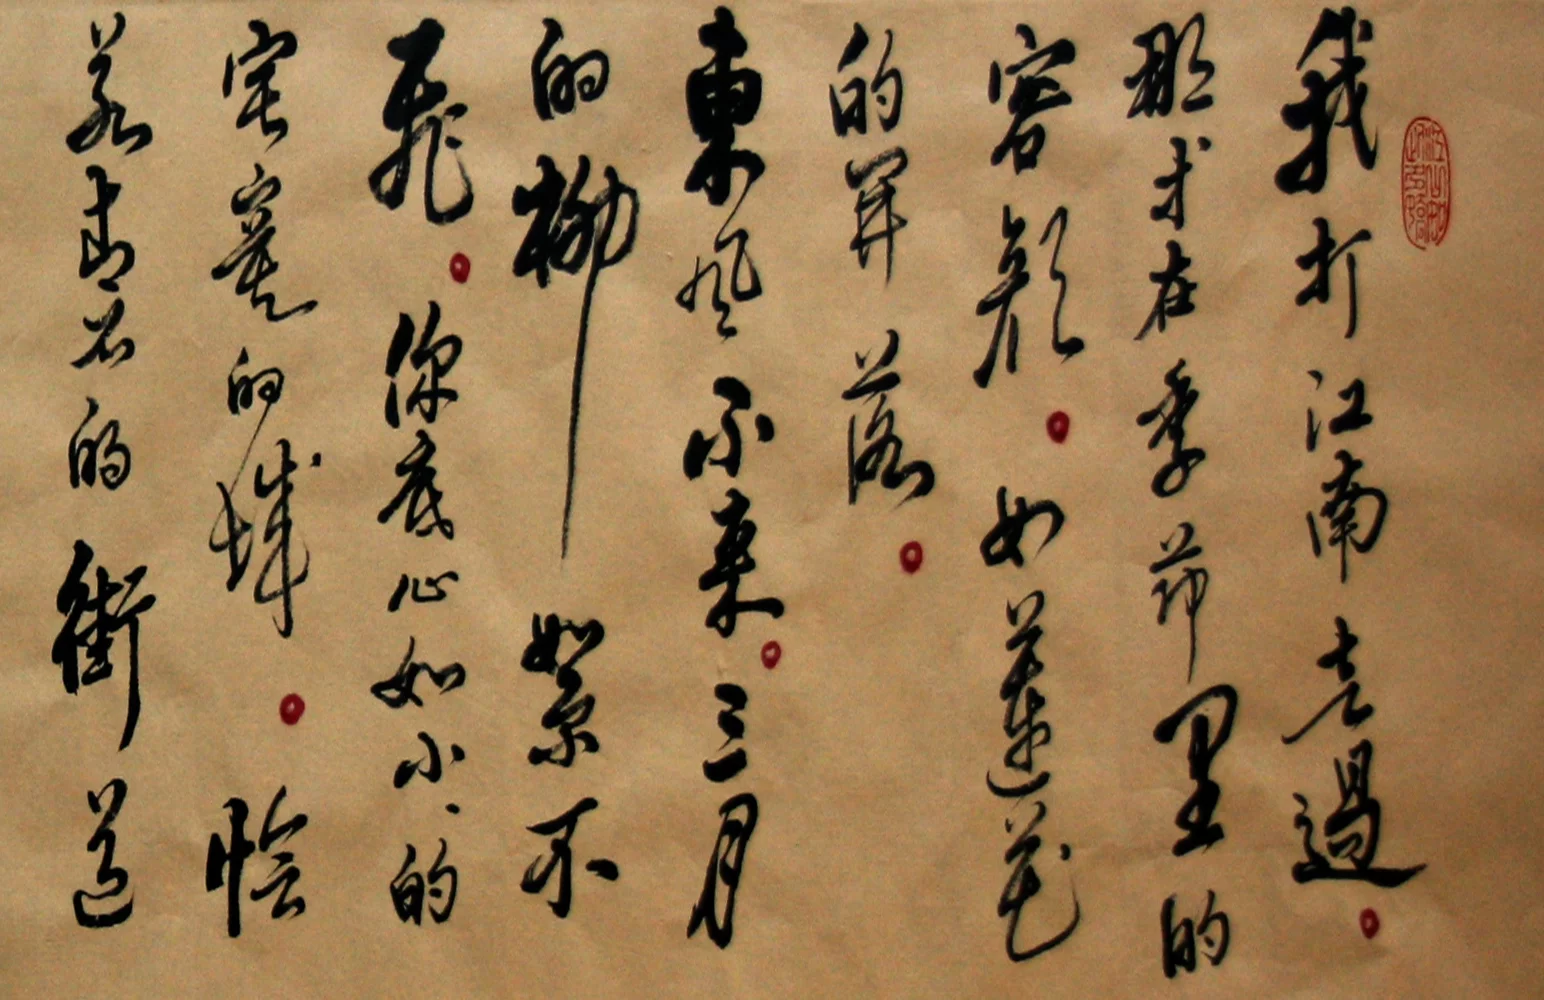 我打江南走過。
那等在季節里的
容顏。如蓮花
的開落。
東風不來。三月
的柳絮不
飛。你底心如小小的
寂寞的城。恰
若青石的街道